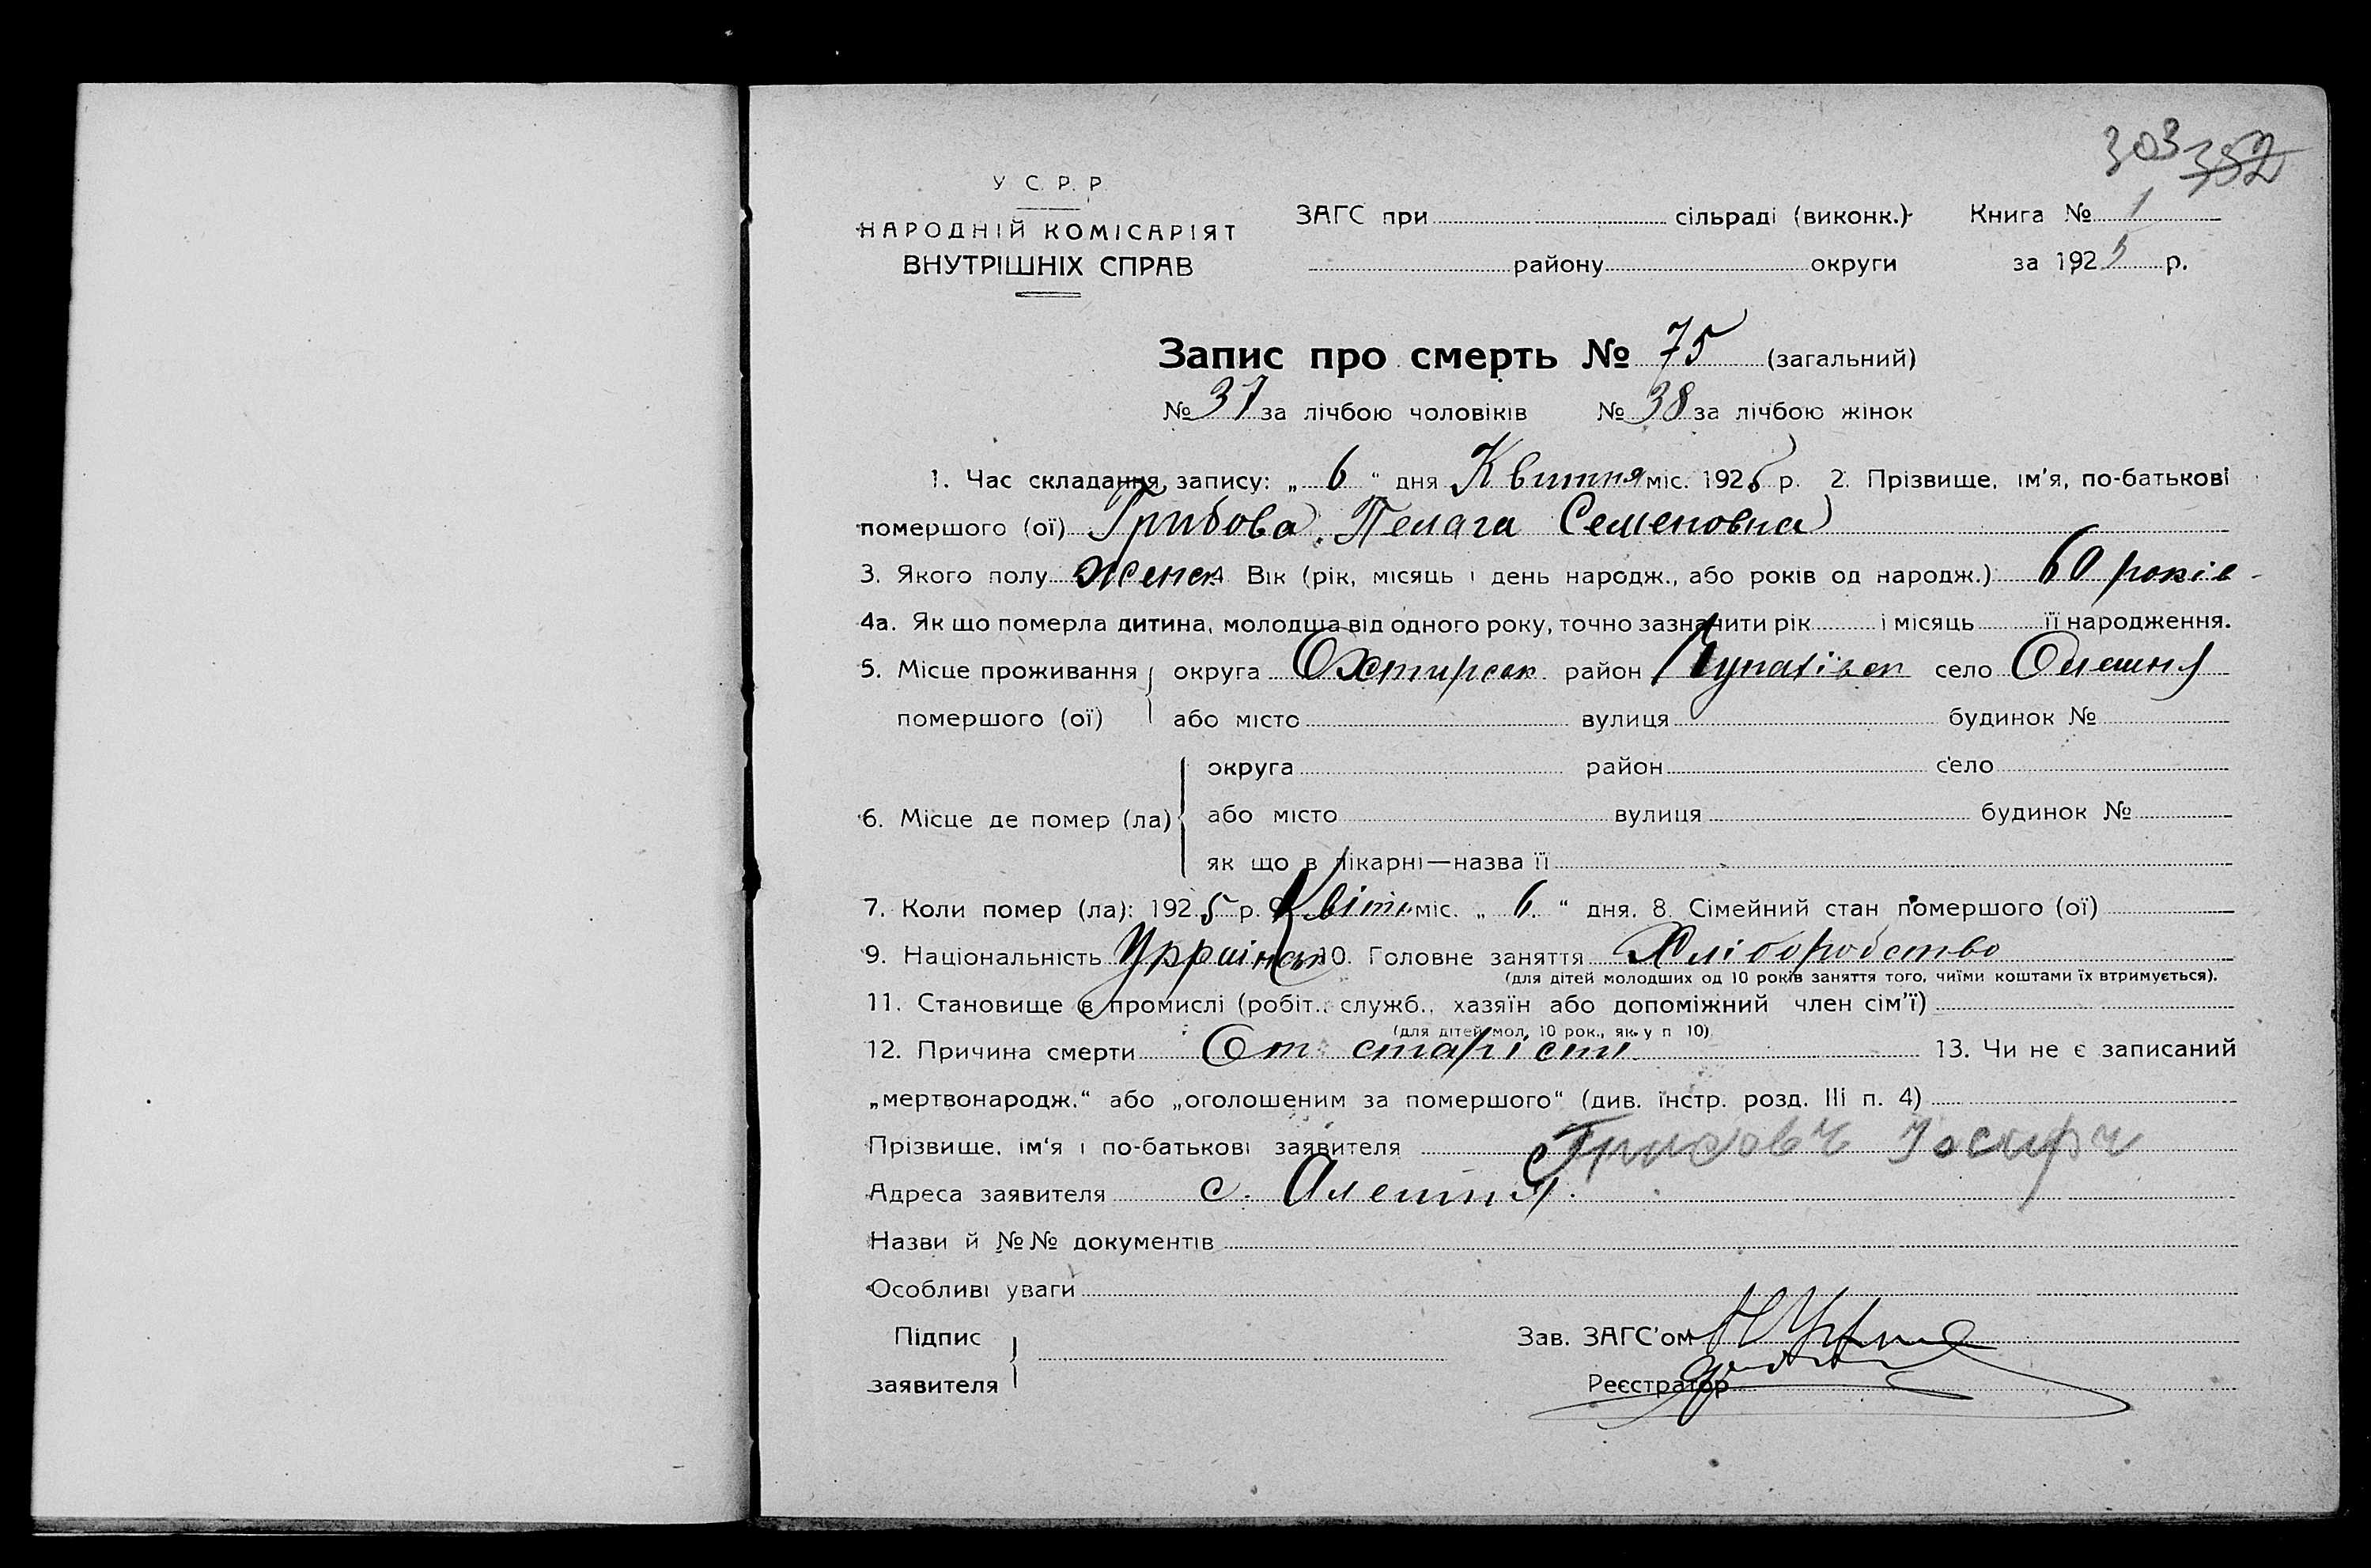 303 352
У С. Р. Р.
НАРОДНІЙ КОМІСАРІЯТ
ВНУТРІШНІХ СПРАВ
ЗАГС при сільраді (виконк.)
району округи
Книга № 1
за 1925 р.
Запис про смерть № 75 (загальний)
№ 37 за лічбою чоловіків № 38 за лічбою жінок
1. Час складання запису: „ 6 “ дня Квитня міс. 1925 р. 2. Прізвище, ім'я, по-батькові
помершого (ої) Грибова Пелага Семеновна
3. Якого полу женск 4 Вік (рік, місяць і день народж., або років од народж.) 60 років
4а. Як що померла дитина, молодша від одного року, точно зазначити рік і місяць її народження.
5. Місце проживання округа Охтирськ район село Олешня
помершого (ої) або місто вулиця будинок №
округа район село
6. Місце де помер (ла) або місто вулиця будинок №
як що в лікарні—назва її
7. Коли помер (ла): 1925 р. Квітн міс. „ 6 “ дня. 8. Сімейний стан помершого (ої)
9. Національність 10. Головне заняття Хліборобство
(для дітей молодших од 10 років заняття того, чиїми коштами їх втримується).
11. Становище в промислі (робіт., служб., хазяїн або допоміжний член сім'ї)
(для дітей мол. 10 рок., як у п 10)
12. Причина смерти От старісти 13. Чи не є записаний
„мертвонародж.“ або „оголошеним за помершого“ (див. інстр. розд. III п. 4)
Прізвище, ім'я і по-батькові заявителя
Адреса заявителя с. Алешня.
Назви й №№ документів
Особливі уваги
Підпис
заявителя
Зав. ЗАГС'ом
Реєстратор